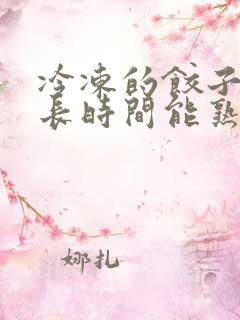 冷凍的餃子
長時間能熟
娜扎